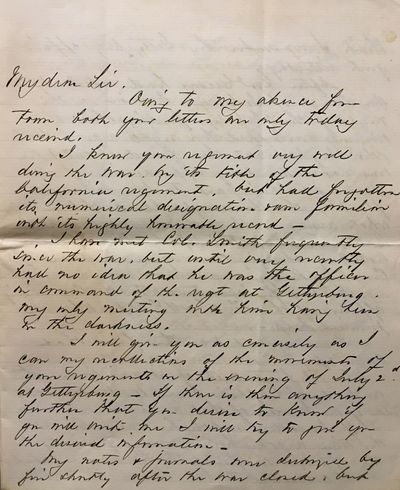 My dear Sir.
Owing to my absence from
town both your letters are only to-day
received.
I knew your regiment very well
during the war, by its title of the
California regiment, but had forgotten
its numerical designation
with its highly honorable record –
I have met Col. Smith frequently
since the war, but until very recently
had no idea that he was the officer
in command of the regt at Gettysburg,
my only meeting with him having been
in the darkness.
I will give you as concisely as I
can my recollections of the movements of
your regiments on the evening of July 2d
at Gettysburg – If there is anything
further that you desire to know if
you will write me I will try to give you
the desired information –
My notes & journals were destroyed by
fire shortly after the war closed, but